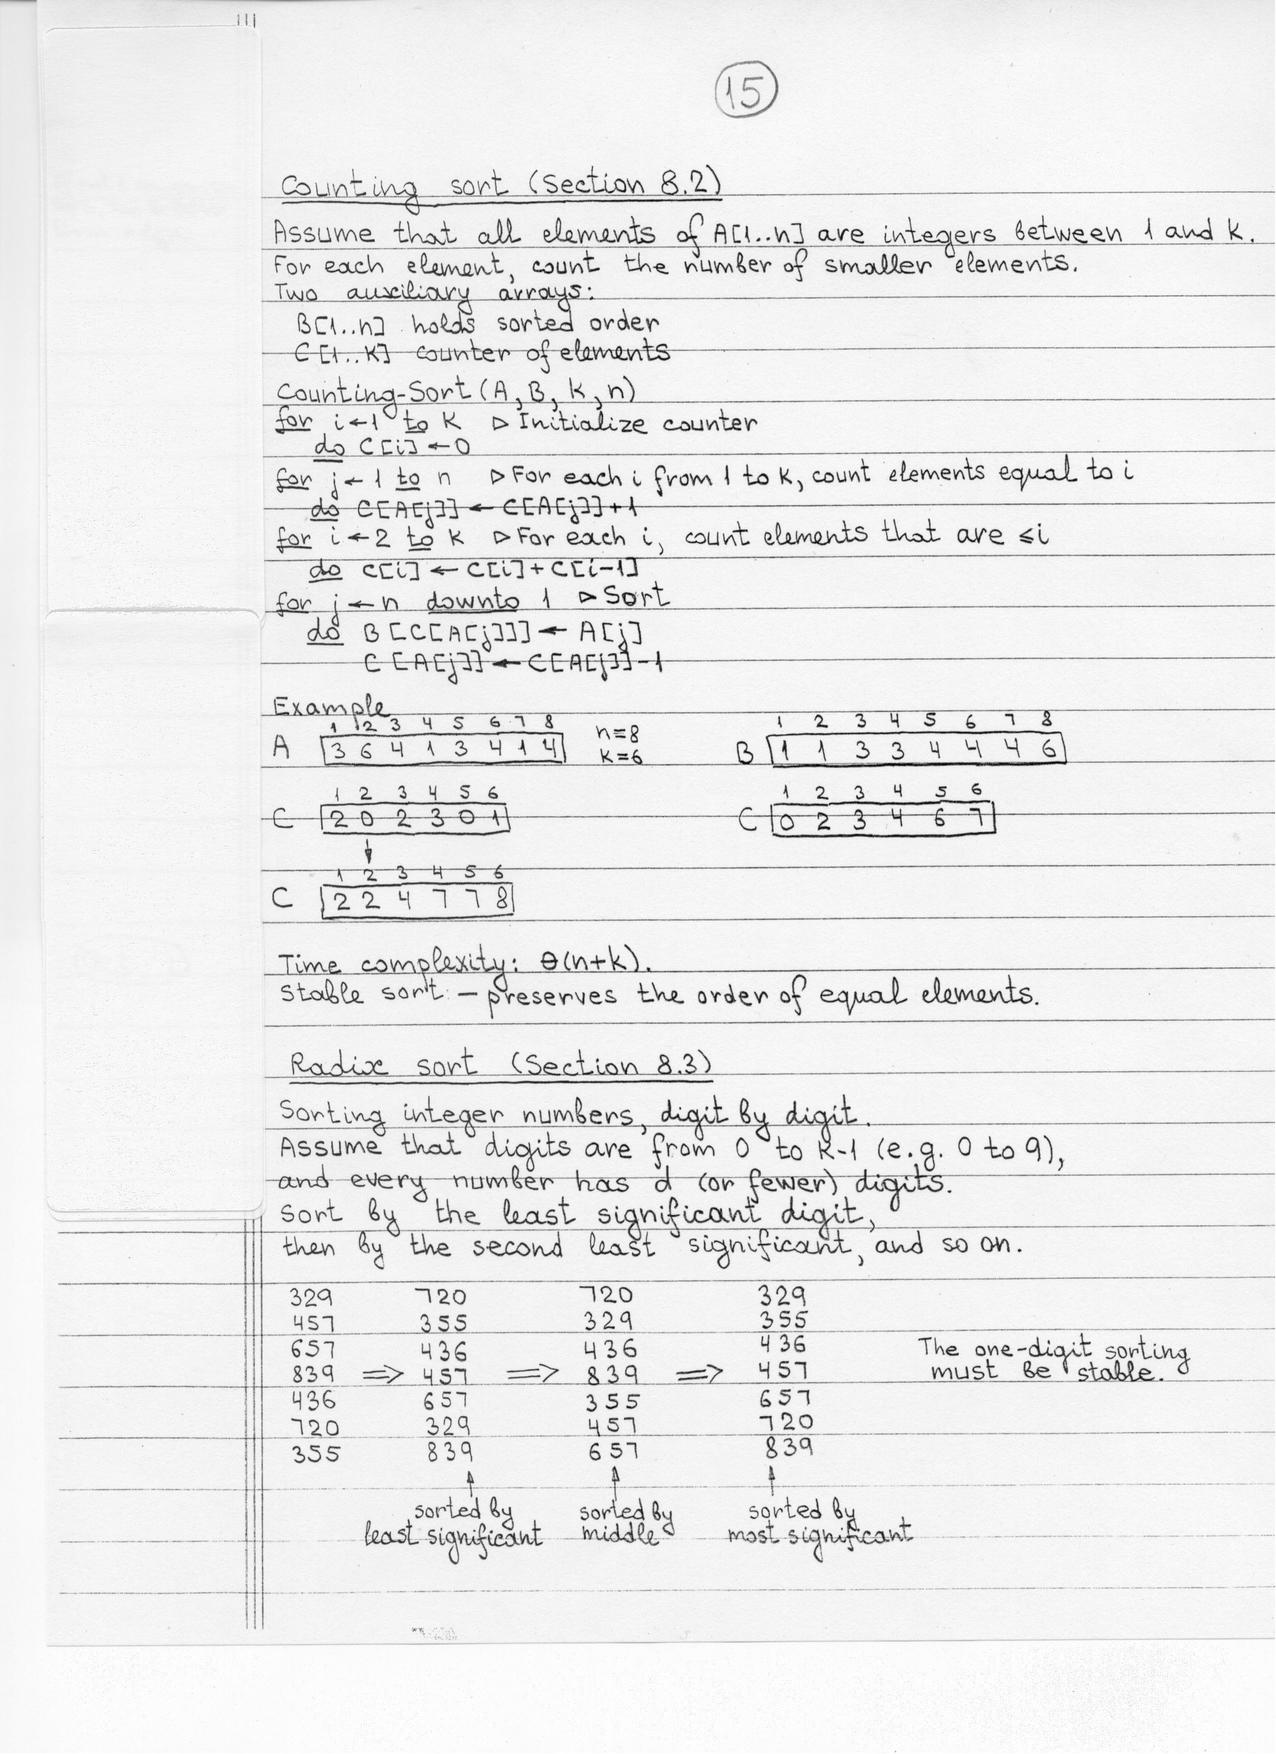 15
Counting sort (Section 8.2)
Assume that all elements of A[1..n] are integers between 1 and k.
For each element, count the number of smaller elements.
Two auxiliary arrays:
B[1..n] holds sorted order
C[1..k] counter of elements
Counting-Sort(A, B, k, n)
for i ← 1 to k ▷ Initialize counter
do C[i] ← 0
for j ← 1 to n ▷ For each i from 1 to k, count elements equal to i
do C[A[j]] ← C[A[j]]+1
for i ← 2 to k ▷ For each i, count elements that are ≤i
do C[i] ← C[i] + C[i-1]
for j ← n downto 1 ▷ Sort
do B[C[A[j]]] ← A[j]
C[A[j]] ← C[A[j]]-1
Example
1 2 3 4 5 6 7 8 n=8 1 2 3 4 5 6 7 8
A 3 6 4 1 3 4 1 4 k=6 B 1 1 3 3 4 4 4 6
1 2 3 4 5 6 1 2 3 4 5 6
C 2 0 2 3 0 1 C 0 2 3 4 6 7
↓
1 2 3 4 5 6
C 2 2 4 7 7 8
Time complexity: Θ(n+k).
Stable sort: – preserves the order of equal elements.
Radix sort (Section 8.3)
Sorting integer numbers, digit by digit.
Assume that digits are from 0 to k-1 (e.g. 0 to 9),
and every number has d (or fewer) digits.
Sort by the least significant digit,
then by the second least significant, and so on.
329 720 720 329
457 355 329 355
657 436 436 436 The one-digit sorting
839 ⇒ 457 ⇒ 839 ⇒ 457 must be stable.
436 657 355 657
720 329 457 720
355 839 657 839
↑ ↑ ↑
sorted by sorted by sorted by
least significant middle most significant